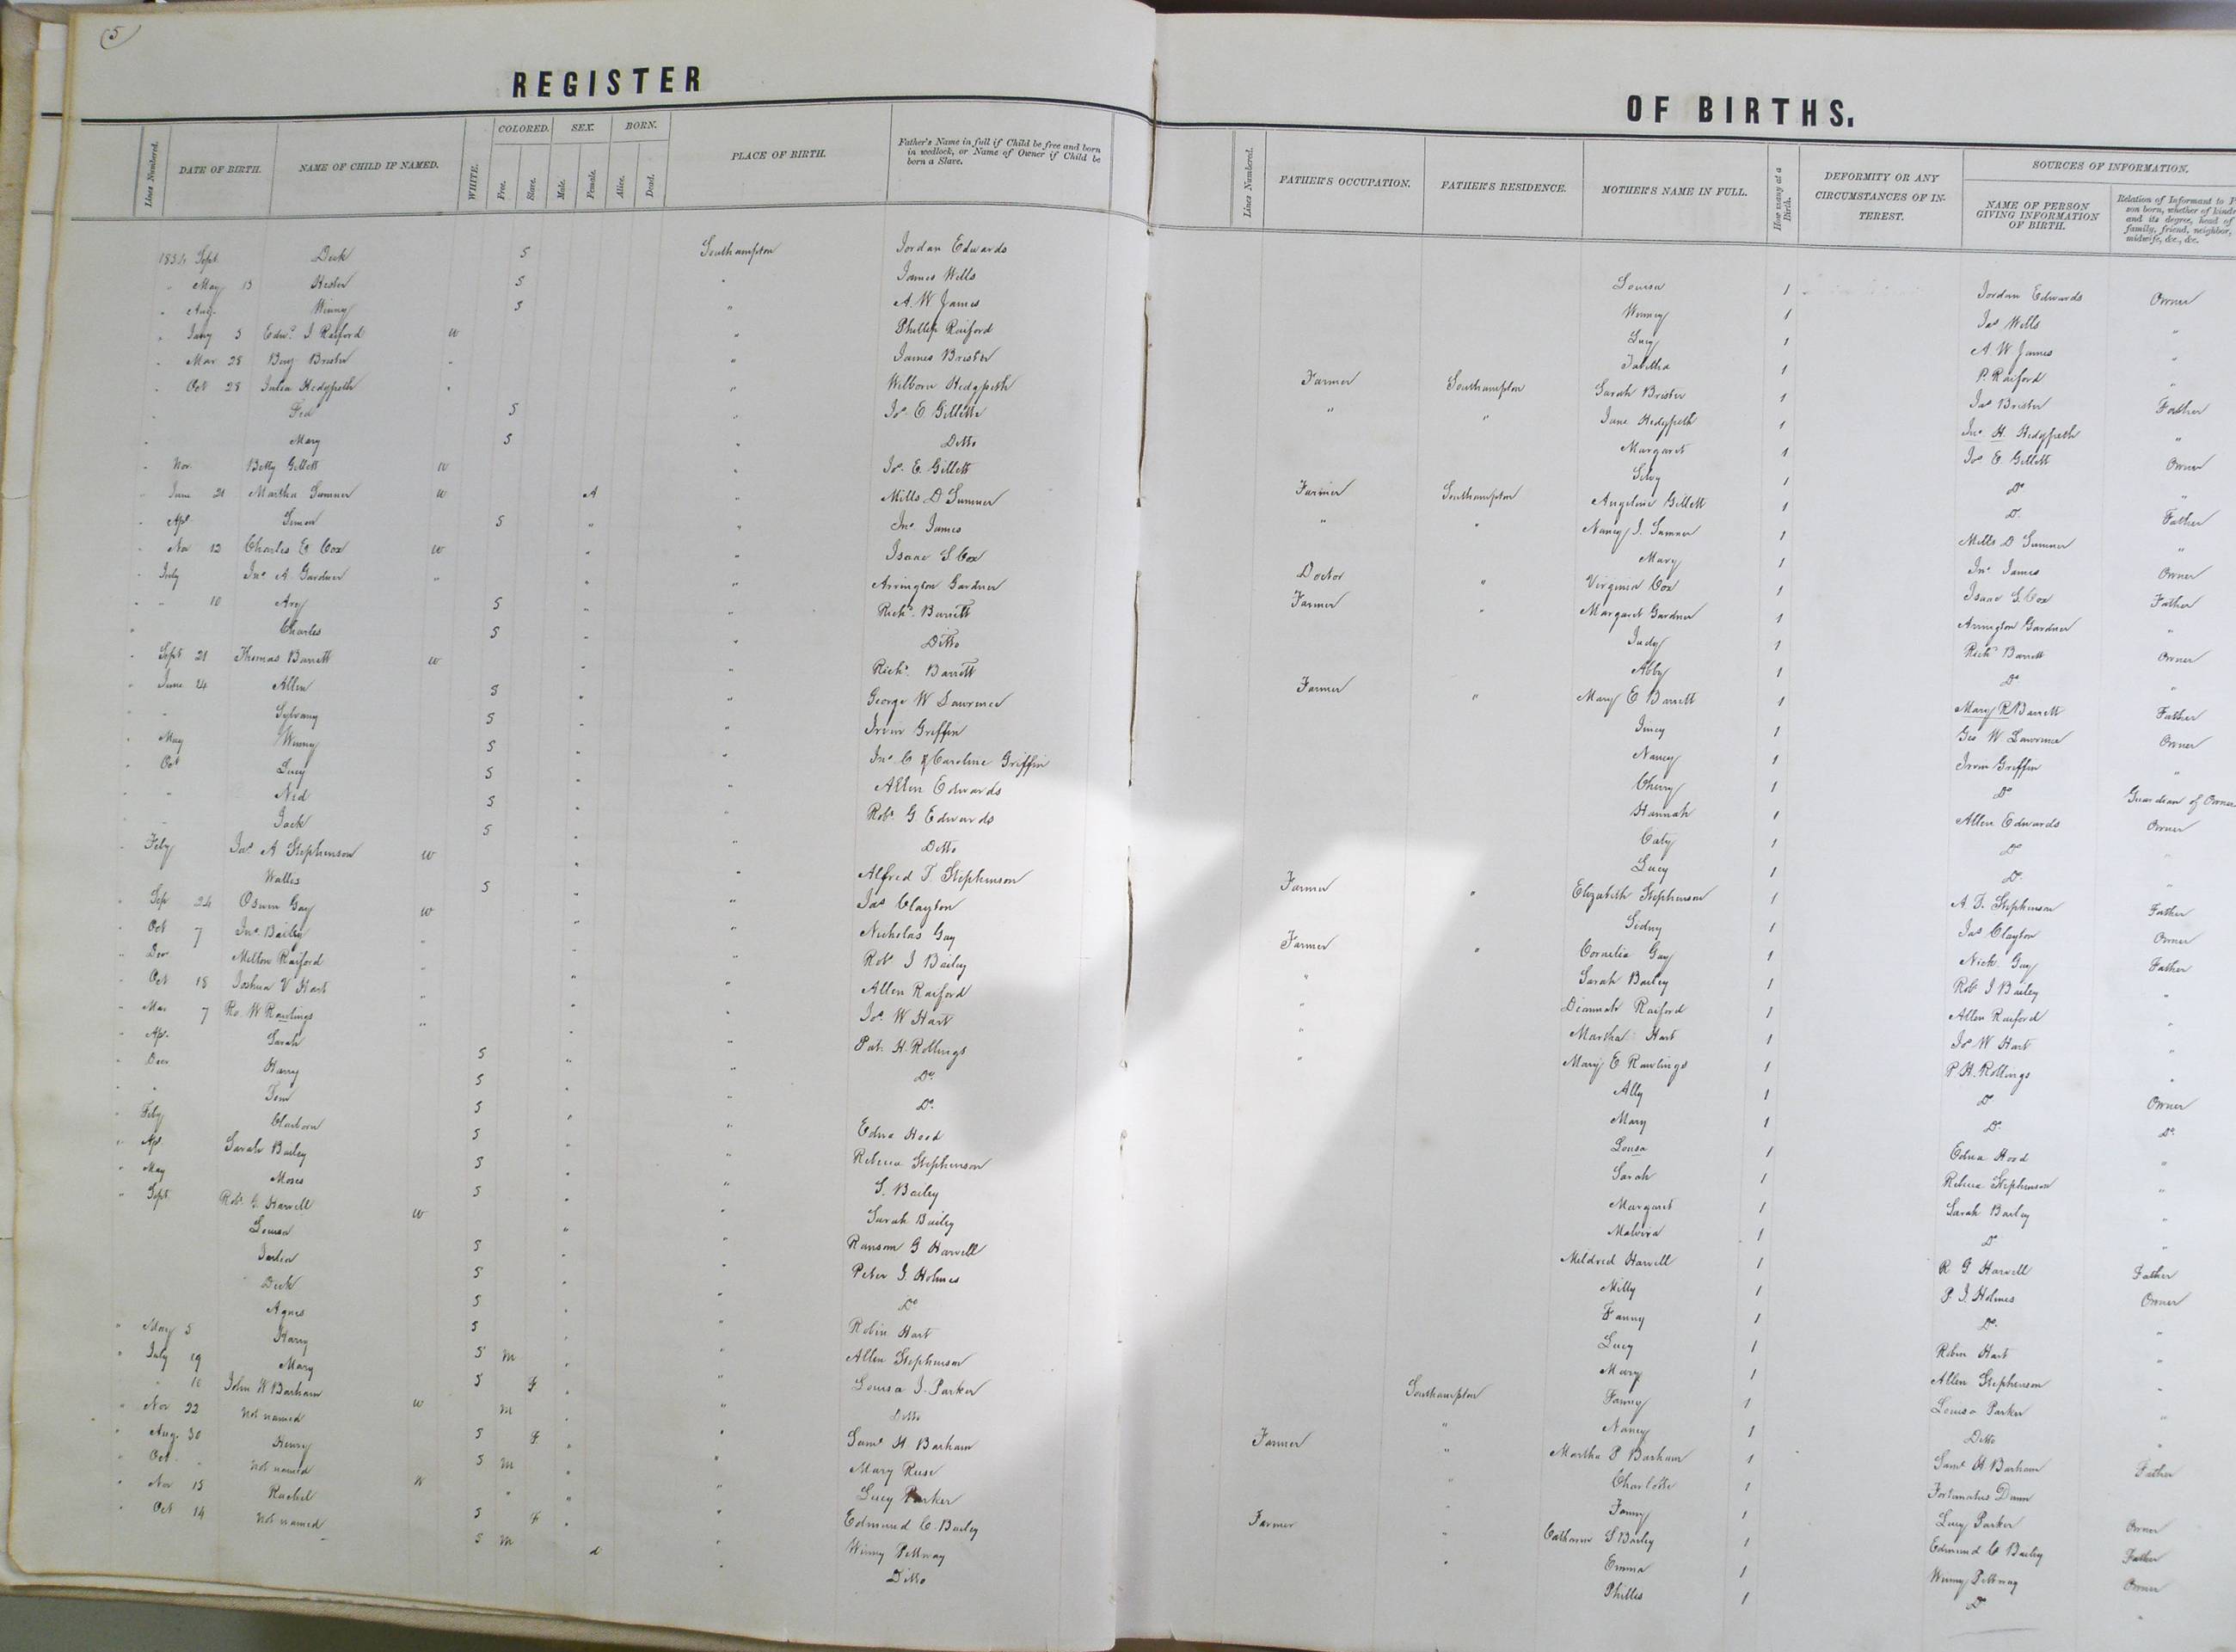 5
REGISTER
Lines Numbered. DATE OF BIRTH. NAME OF CHILD IF NAMED. WHITE. COLORED. Free. Slave. SEX. Male. Female. BORN. Alive. Dead. PLACE OF BIRTH. Father's Name in full if Child be free and born in wedlock, or Name of Owner if Child be born a Slave.
Sept Dick S Southampton Jordan Edwards
" May 13 Hester S " James Wells
" Aug. Winny S " A. W James
" Jany 3 Edwd. J. Raiford W " Phillip Raiford
" Mar 28 Benj. Brister " " James Brister
" Oct 28 Julia Hedgpeth " " Wilborn Hedgpeth
" S " Jos. E Gillett
" Mary S " Ditto
" Nov. Betty Gillett W " Jos. E. Gillett
" June 21 Martha Sumner W A " Mills D Sumner
" Apl Simon S " " Jno. James
" Nov 12 Charles E Cox W " " Isaac S. Cox
" July Jno. A. Gardner " " " Arrington Gardner
" " 10 Any S " " Richd. Barrett
" Charles S " " Ditto
" Sept 21 Thomas Barrett W " " Richd. Barrett
" June 14 Allen S " " George W Lawrence
" " Sylvany S " " Irvin Griffin
" May Winny S " " Jno. C & Caroline Griffin
" Oct Lucy S " " Allen Edwards
" " Ned S " " Robt. G Edwards
" " Jack S " " Ditto
" Feby Jas. A Stephenson W " " Alfred T. Stephenson
Wallis S " " Jas Clayton
" Sep 24 Osum Gay W " " Nicholas Gay
" Oct 7 Jno. Bailey " " Robt. J Bailey
" Dec Milton Raiford " " " Allen Raiford
" Oct 18 Joshua V Hart " " " Jos. W Hart
" Mar 7 Ro. W Rawlings " " " Pat. H. Rollings
" Ap. Sarah S " " Do.
" Decr Harry S " " Do.
" " Tom S " " Edna Hood
" Feby Claiborn S " " Rebecca Stephenson
" Apl Sarah Bailey S " " S. Bailey
" May Moses S " " Sarah Bailey
" Sept Robt. G. Harvell W " " Ransom G Harvell
Louisa S " " Peter J. Holmes
S " " Do
Dick S " " Robin Hart
Agnes S " " Allen Stephenson
" May 5 Harry S M " " Louisa J. Parker
" July 19 Mary S F " " Ditto
" " 16 John W Barham W M " " Saml. H Barham
" Nov 22 Not named S F " " Mary
" Aug. 30 Henry S M " " Lucy Parker
" Oct. Not named W " " " Edmund C. Bailey
" Nov 15 Rachel S F " " Winny Pettway
" Oct 14 Not named S M d " Ditto
OF BIRTHS.
Lines Numbered. FATHER'S OCCUPATION. FATHER'S RESIDENCE. MOTHER'S NAME IN FULL. How many at a Birth. DEFORMITY OR ANY CIRCUMSTANCES OF INTEREST. SOURCES OF INFORMATION. NAME OF PERSON GIVING INFORMATION OF BIRTH. Relation of Informant to P son born, whether of kind and its degree, head of family, friend, neighbor, midwife, &c., &c.
Louisa 1 Jordan Edwards Owner
Winney 1 Jas Wells "
Lucy 1 A. W James "
Tabitha 1 P. Raiford "
Farmer Southampton Sarah Brister 1 Jas. Brister Father
" " Jane Hedgpeth 1 Jno. H. Hedgpeth "
Margaret 1 Jos E. Gillett Owner
Silvy 1 Do "
Farmer Southampton Angeline Gillett 1 Do Father
" " Nancy J. Sumner 1 Mills D Sumner "
Mary 1 Jno. James Owner
Doctor " Virginia Cox 1 Isaac S. Cox Father
Farmer " Margaret Gardner 1 Arrington Gardner "
Judy 1 Richd Barrett Owner
Abby 1 Do "
Farmer " Mary E Barrett 1 Mary R Barrett Father
Jincy 1 Geo W Lawrence Owner
Nancy 1 Irvin Griffin "
Cherry 1 Do Guardian of Owner
Hannah 1 Allen Edwards Owner
Caty 1 Do "
Lucy 1 Do "
Farmer " Elizabeth Stephenson 1 A. T. Stephenson Father
Sidney 1 Jas Clayton Owner
Farmer " Cornelia Gay 1 Nich. Gay Father
" Sarah Bailey 1 Robt J Bailey "
" Diannah Raiford 1 Allen Raiford "
" Martha Hart 1 Jos W Hart "
" Mary E Rawlings 1 P. H. Rollings "
Ally 1 Do Owner
Mary 1 Do. Do
Lousa 1 Edna Hood "
Sarah 1 Rebecca Stephenson "
Margaret 1 Sarah Bailey "
Malvira 1 Do "
Mildred Harvell 1 R G Harvell Father
Milly 1 P. J. Holmes Owner
Fanny 1 Do. "
Lucy 1 Robin Hart "
Mary 1 Allen Stephenson "
Southampton Fanny 1 Louisa Parker "
" Nancy 1 Ditto "
Farmer " Martha P Barham 1 Saml. H Barham Father
" Charlotte 1 Fortunatus
" Fanny 1 Lucy Parker Owner
Farmer " Catharine S Bailey 1 Edmund C Bailey Father
" Emma 1 Winny Pettway Owner
Phillis 1 Do "